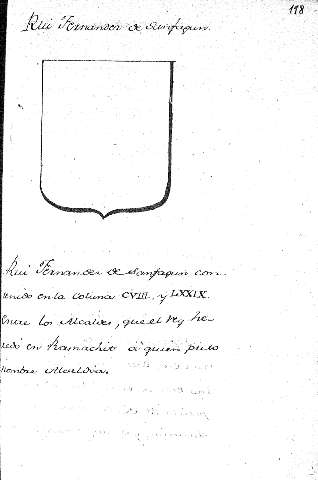 118
Rui Fernandez de Sanfagun.
Rui Fernandez de Sanfagun con-
tenido en la Coluna CVIII. y LXXIX.
Entre los Alcaldes, que el rey he-
redó en Kamachit à quien puso
nombre Alcaldia.